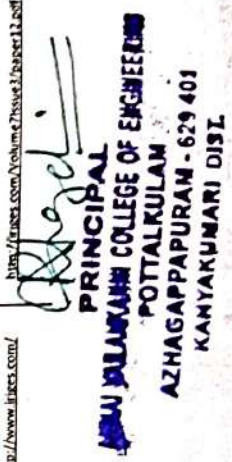 http://www.irjees.com/
http://irjees.com/Volume7Issue3/paper12.pdf
PRINCIPAL
COLLEGE OF ENGINEERING
POTTALKULAM
AZHAGAPPAPURAM - 629 401
KANYAKUMARI DIST.